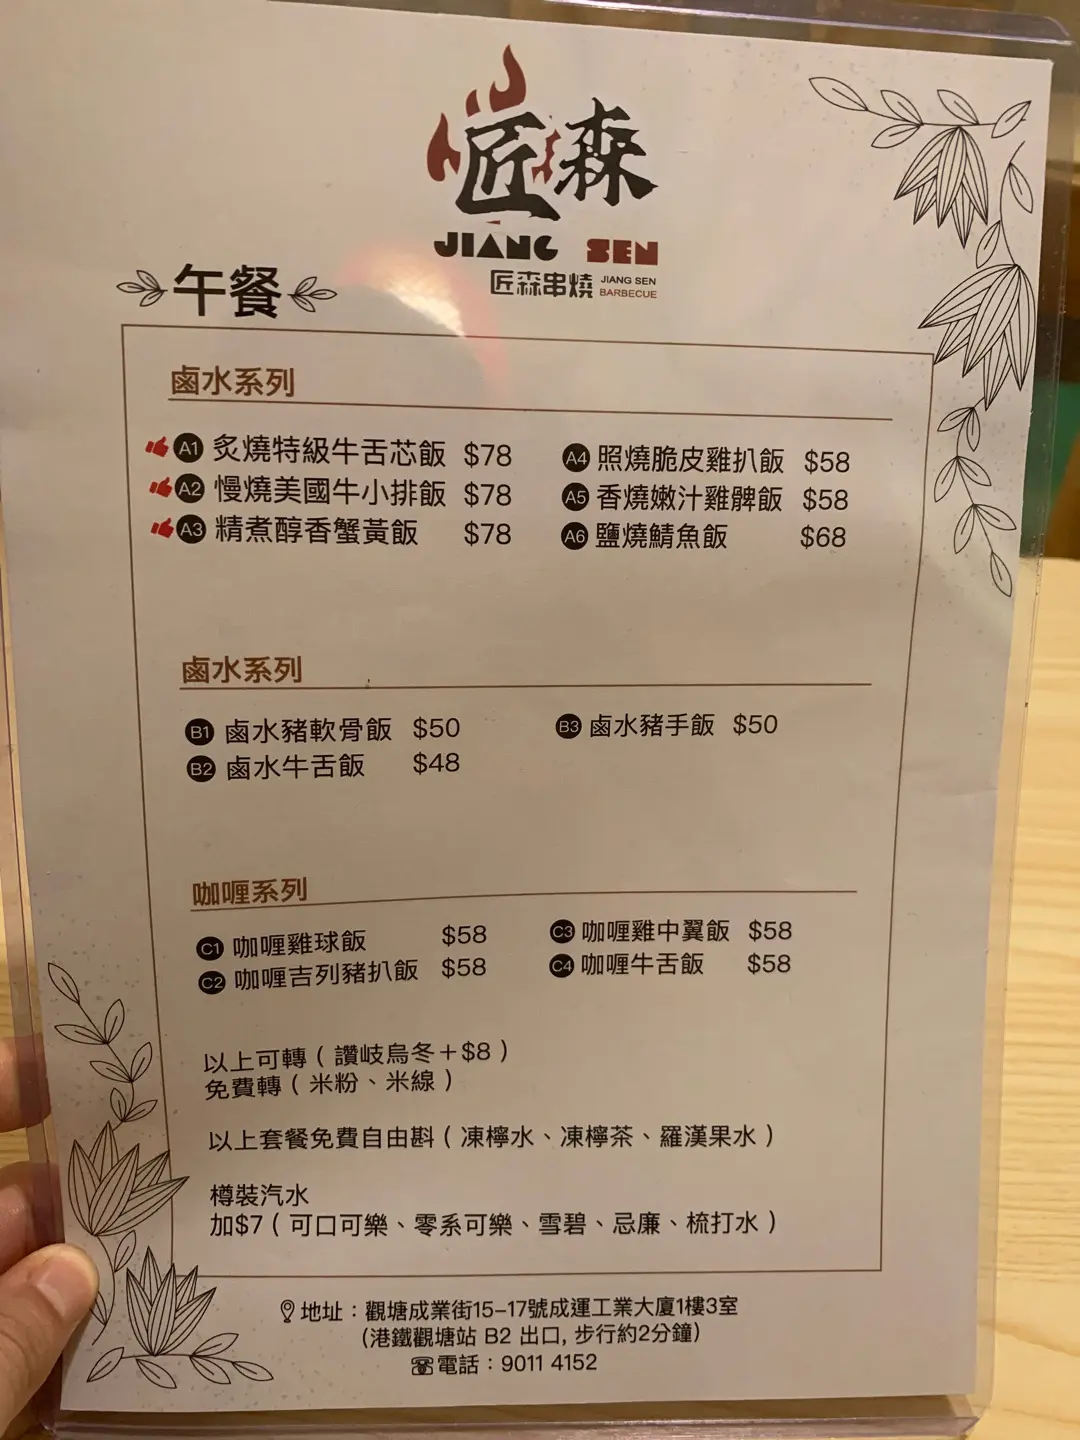 匠森
JIANG SEN
匠森串燒 JIANG SEN BARBECUE
午餐
鹵水系列
A1 炙燒特級牛舌芯飯 $78
A2 慢燒美國牛小排飯 $78
A3 精煮醇香蟹黃飯 $78
A4 照燒脆皮雞扒飯 $58
A5 香燒嫩汁雞髀飯 $58
A6 鹽燒鯖魚飯 $68
鹵水系列
B1 鹵水豬軟骨飯 $50
B2 鹵水牛舌飯 $48
B3 鹵水豬手飯 $50
咖喱系列
C1 咖喱雞球飯 $58
C2 咖喱吉列豬扒飯 $58
C3 咖喱雞中翼飯 $58
C4 咖喱牛舌飯 $58
以上可轉（讚岐烏冬＋$8）
免費轉（米粉、米線）
以上套餐免費自由斟（凍檸水、凍檸茶、羅漢果水）
樽裝汽水
加$7（可口可樂、零系可樂、雪碧、忌廉、梳打水）
地址：觀塘成業街15-17號成運工業大廈1樓3室
(港鐵觀塘站 B2 出口, 步行約2分鐘)
電話：9011 4152